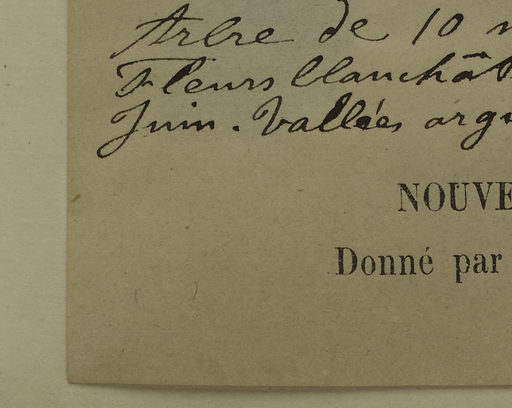 Arbre de 10 m
Fleurs blanchât
Juin. Vallées argi
NOUVE
Donné par